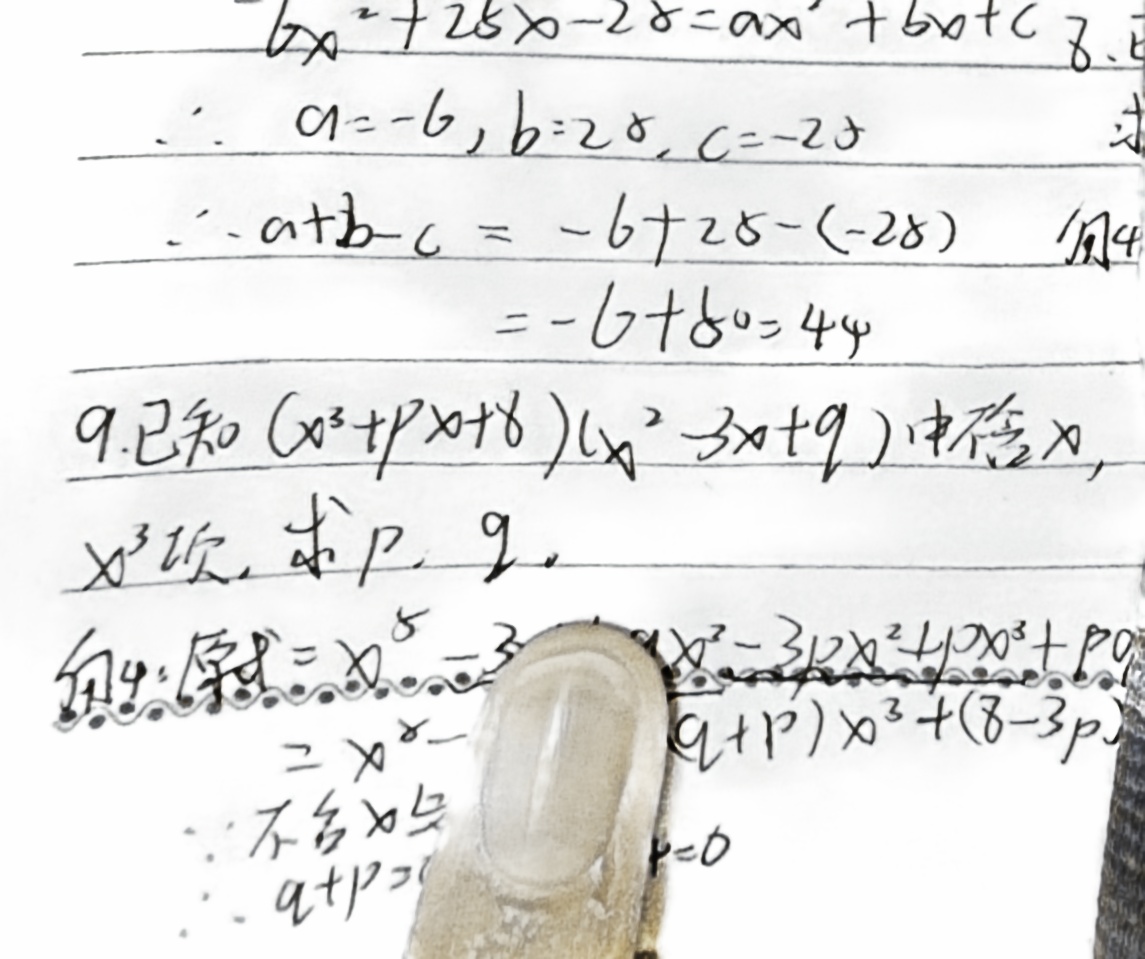 6x²+25x-25=ax²+bx+c
∴ a=-6, b=25, c=-25
∴ a+b-c = -6+25-(-25)
=-6+50=44
9.已知(x³+px+8)(x²-3x+q)中不含x,
x³项. 求p. q.
解: 原式=x⁵-3 qx³-3px²+px³+pq
=x⁵- (q+p)x³+(8-3p)
∵不含x与
∴ q+p= =0
8.
求
解